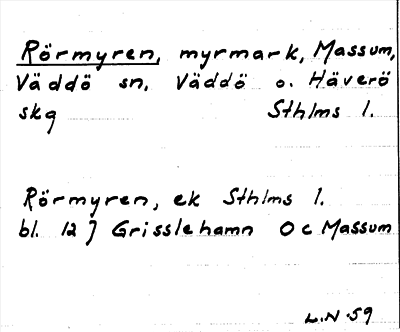 Rörmyren, myrmark, Massum,
Väddö sn, Väddö o. Häverö
skg Sthlms l.
Rörmyren, ek Sthlms l.
bl. 12 J Grisslehamn Oc Massum
L.N. 59